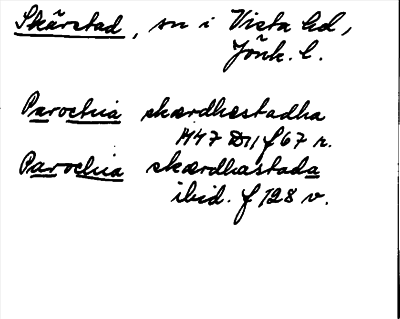 Skärstad, sn i Vista hd,
Jönk. l.
Parochia skærdhæstadha
1447 D 11 f 67 r.
Parochia skærdhastada
ibid. f 128 v.